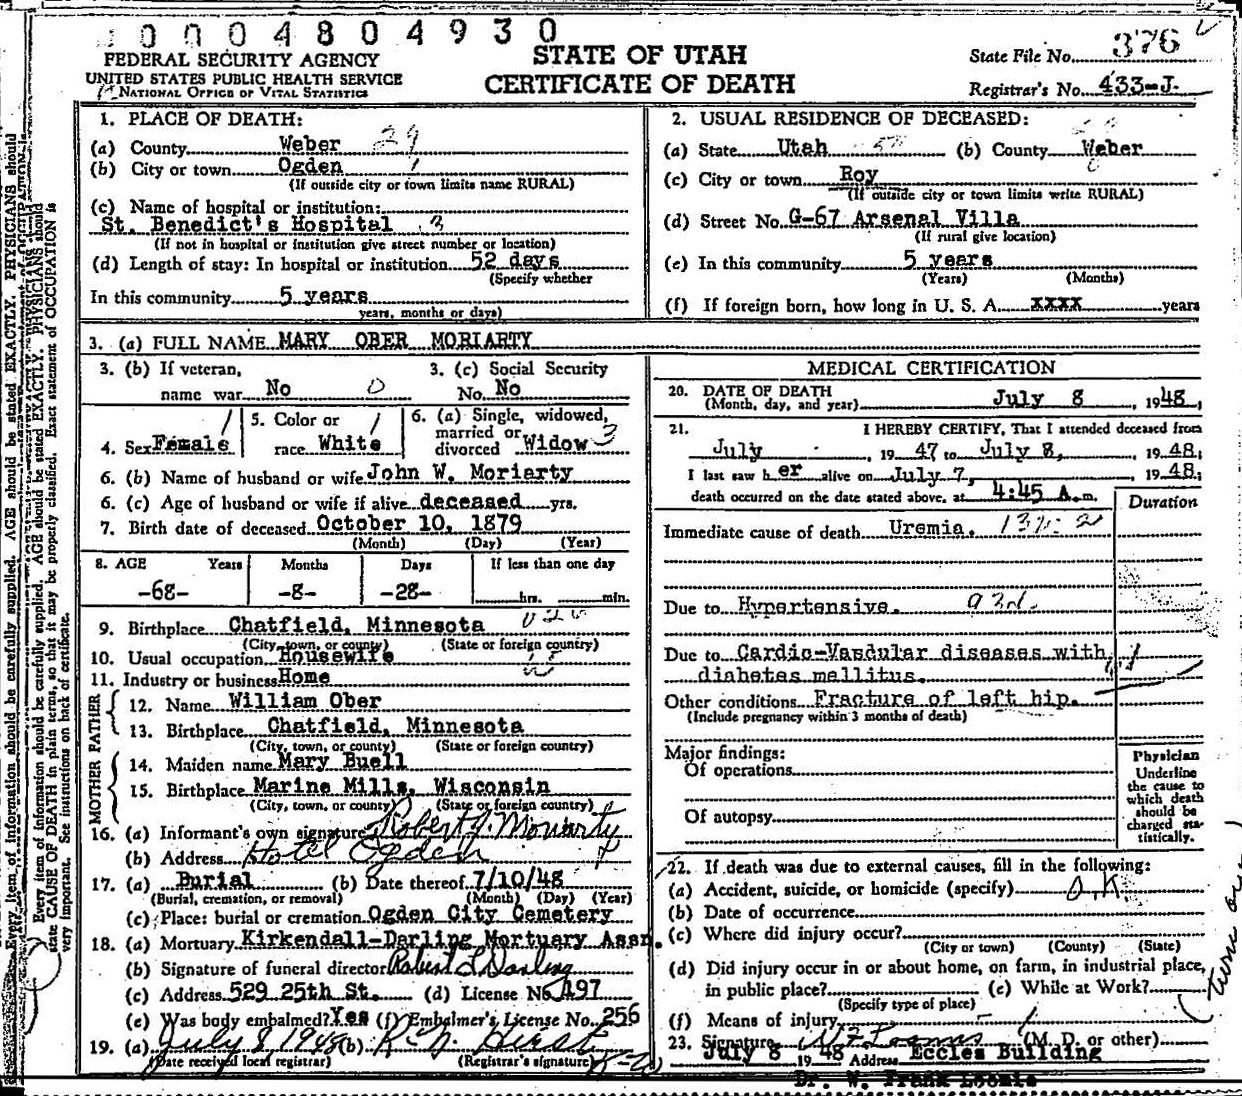 0004804930
FEDERAL SECURITY AGENCY
UNITED STATES PUBLIC HEALTH SERVICE
NATIONAL OFFICE OF VITAL STATISTICS
STATE OF UTAH
CERTIFICATE OF DEATH
State File No. 376
Registrar's No. 433-J.
1. PLACE OF DEATH:
(a) County Weber 29
(b) City or town Ogden 1
(If outside city or town limits name RURAL)
(c) Name of hospital or institution:
St. Benedict's Hospital 3
(If not in hospital or institution give street number or location)
(d) Length of stay: In hospital or institution 52 days
(Specify whether
In this community 5 years
years, months or days)
2. USUAL RESIDENCE OF DECEASED:
(a) State Utah (b) County Weber
(c) City or town Roy
(If outside city or town limits write RURAL)
(d) Street No. G-67 Arsenal Villa
(If rural give location)
(e) In this community 5 years
(Years) (Months)
(f) If foreign born, how long in U. S. A. xxxx years
3. (a) FULL NAME MARY OBER MORIARTY
3. (b) If veteran, 3. (c) Social Security
name war No 0 No. No
4. Sex Female 1 5. Color or race White 1 6. (a) Single, widowed, married or divorced Widow 3
6. (b) Name of husband or wife John W. Moriarty
6. (c) Age of husband or wife if alive deceased yrs.
7. Birth date of deceased October 10, 1879
(Month) (Day) (Year)
8. AGE Years Months Days If less than one day
-68- -8- -28- hrs. min.
9. Birthplace Chatfield, Minnesota
(City, town, or county) (State or foreign country)
10. Usual occupation Housewife
11. Industry or business Home
FATHER
12. Name William Ober
13. Birthplace Chatfield, Minnesota
(City, town, or county) (State or foreign country)
MOTHER
14. Maiden name Mary Buell
15. Birthplace Marine Mills, Wisconsin
(City, town, or county) (State or foreign country)
16. (a) Informant's own signature Robert J. Moriarty
(b) Address Hotel Ogden
17. (a) Burial (b) Date thereof 7/10/48
(Burial, cremation, or removal) (Month) (Day) (Year)
(c) Place: burial or cremation Ogden City Cemetery
18. (a) Mortuary Kirkendall-Darling Mortuary Assn.
(b) Signature of funeral director Robert L Darling
(c) Address 529 25th St. (d) License No. 197
(e) Was body embalmed? Yes (f) Embalmer's License No. 256
19. (a) July 8 1948 (b) R. N. Hirst
(Date received local registrar) (Registrar's signature)
MEDICAL CERTIFICATION
20. DATE OF DEATH
(Month, day, and year) July 8, 1948,
21. I HEREBY CERTIFY, That I attended deceased from
July, 1947 to July 8, 1948;
I last saw her alive on July 7, 1948;
death occurred on the date stated above, at 4:45 A.m.
Duration
Immediate cause of death Uremia.
Due to Hypertensive. 93d.
Due to Cardio-Vascular diseases with
diabetes mellitus.
Other conditions Fracture of left hip.
(Include pregnancy within 3 months of death)
Major findings:
Of operations
Of autopsy
Physician
Underline
the cause to
which death
should be
charged sta-
tistically.
22. If death was due to external causes, fill in the following:
(a) Accident, suicide, or homicide (specify) O.K
(b) Date of occurrence
(c) Where did injury occur?
(City or town) (County) (State)
(d) Did injury occur in or about home, on farm, in industrial place,
in public place? (e) While at Work?
(Specify type of place)
(f) Means of injury
23. Signature W F Loomis (M. D. or other)
July 8 1948 Address Eccles Building
Dr. W. Frank Loomis
(turn over
Every item of information should be carefully supplied. AGE should be stated EXACTLY. PHYSICIANS should
state CAUSE OF DEATH in plain terms, so that it may be properly classified. Exact statement of OCCUPATION is
very important. See instructions on back of certificate.